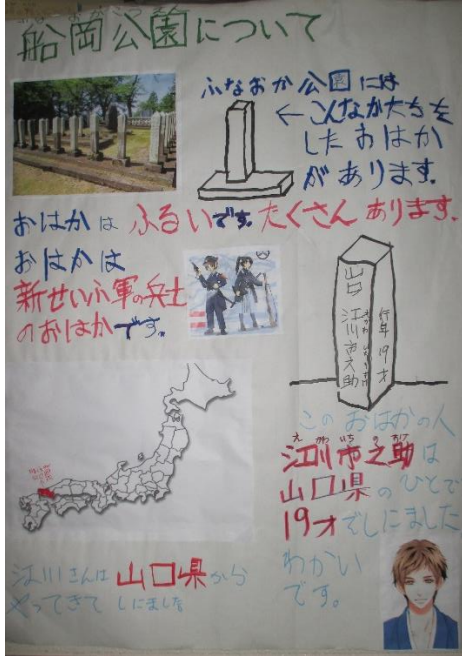 船岡公園について
ふなおか公園には
←こんなかたちを
したおはか
があります。
おはかはふるいです。たくさんあります。
おはかは
新せいふ軍の兵士
のおはかです。
山口 江川市之助
行年19才
このおはかの人
えがわいちのすけ
江川市之助は
山口県のひとで
19才でしにました
わかい
です。
江川さんは山口県から
やってきてしにました